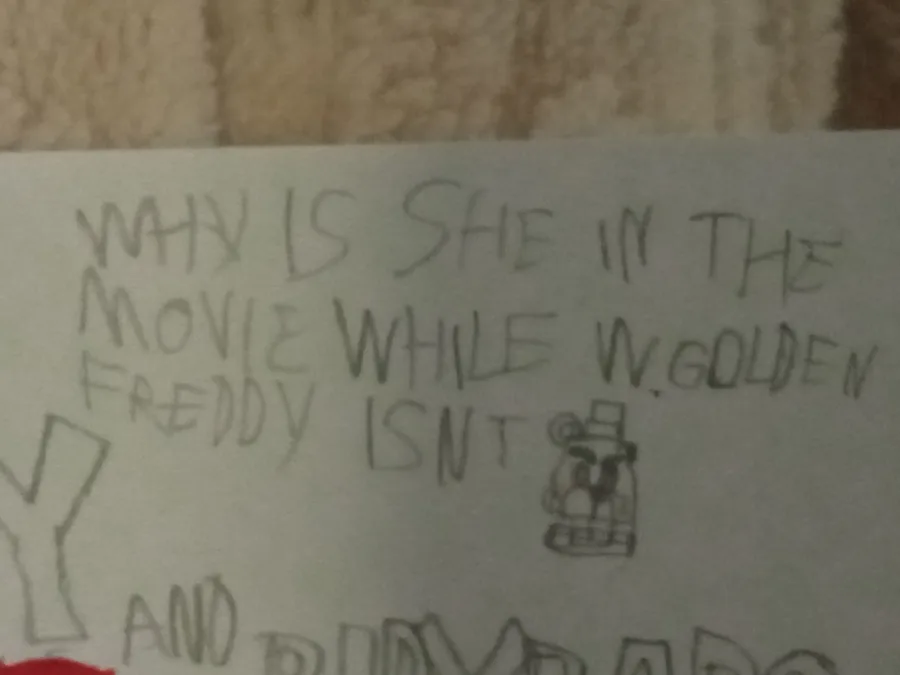 WHY IS SHE IN THE
MOVIE WHILE W.GOLDEN
FREDDY ISNT
Y
AND